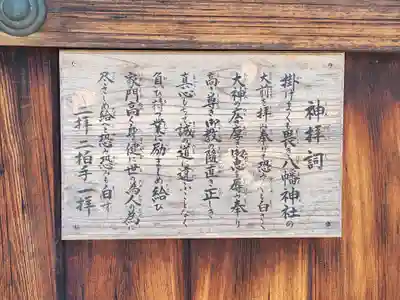 神拝詞
掛けまくも畏き八幡神社の
大前を拝み奉りて恐み恐みも白さく
大神等の広き厚き御恵を辱み奉り
高き尊き神教のまにまに直き正しき
真心もちて誠の道に違ふことなく
負ひ持つ業に励ましめ給ひ
家門高く身健に世の為人の為に
尽さしめ給へと恐み恐みも白す
二拝二拍手一拝